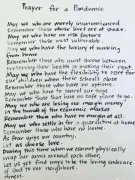 Prayer for a Pandemic
May we who are merely inconvenienced
Remember those whose lives are at stake.
May we who have no risk factors
Remember those most vulnerable.
May we who have the luxury of working
from home
Remember those who must choose between
preserving their health or making their rent.
May we who have the flexibility to care for
our children when their schools close
Remember those who have no options.
May we who have to cancel our trips
Remember those that have no safe place to go.
May we who are losing our margin money
in the tumult of the economic market
Remember those who have no margin at all.
May we who settle in for a quarantine at home
Remember those who have no home.
As fear grips our country,
let us choose love.
During this time when we cannot physically
wrap our arms around each other,
Let us yet find ways to be the loving embrace
of God to our neighbors.